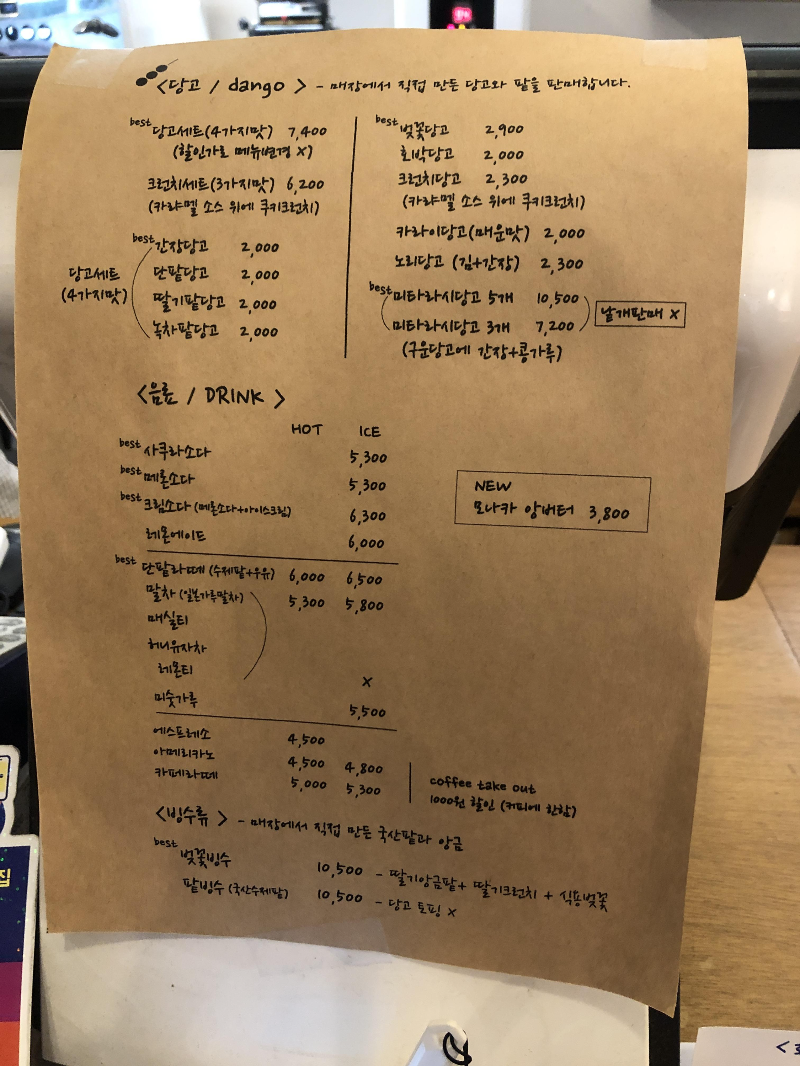 <당고 / dango > - 매장에서 직접 만든 당고와 팥을 판매합니다.
best 당고세트(4가지맛) 7,400
(할인가로 메뉴변경 X)
크런치세트(3가지맛) 6,200
(카라멜 소스 위에 쿠키크런치)
당고세트
(4가지맛)
best 간장당고 2,000
단팥당고 2,000
딸기팥당고 2,000
녹차팥당고 2,000
best 벚꽃당고 2,900
호박당고 2,000
크런치당고 2,300
(카라멜 소스 위에 쿠키크런치)
카라이당고(매운맛) 2,000
노리당고 (김+간장) 2,300
best 미타라시당고 5개 10,500
미타라시당고 3개 7,200
낱개판매 X
(구운당고에 간장+콩가루)
<음료 / DRINK >
HOT ICE
best 사쿠라소다 5,300
best 메론소다 5,300
best 크림소다 (메론소다+아이스크림) 6,300
레몬에이드 6,000
best 단팥라떼 (수제팥+우유) 6,000 6,500
말차 (일본가루말차) 5,300 5,800
매실티
허니유자차
레몬티 X
미숫가루 5,500
에스프레소 4,500
아메리카노 4,500 4,800
카페라떼 5,000 5,300
NEW
모나카 앙버터 3,800
coffee take out
1000원 할인 (커피에 한함)
<빙수류 > - 매장에서 직접 만든 국산팥과 앙금
best 벚꽃빙수 10,500 - 딸기앙금팥+ 딸기크런치 + 식용벚꽃
팥빙수 (국산수제팥) 10,500 - 당고 토핑 X
집